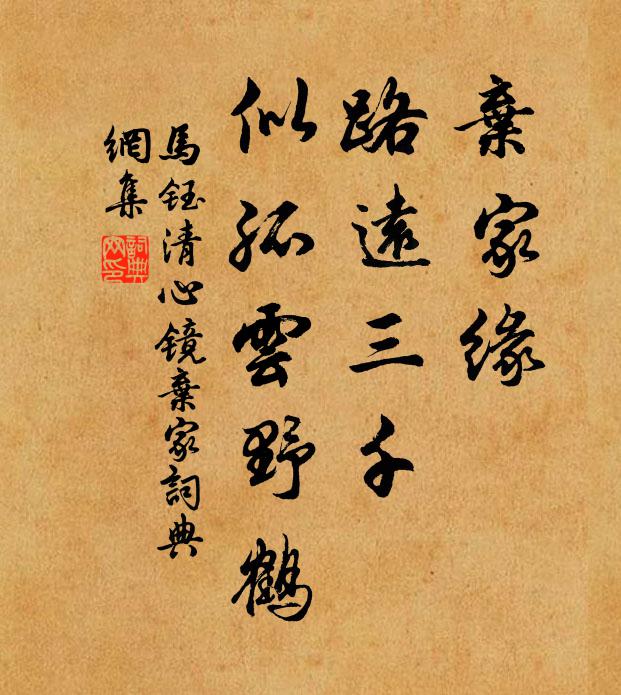 棄家緣
路遠三千
似孤雲野鶴
馬鈺清心镜棄家詞典
網集
詞典
网印